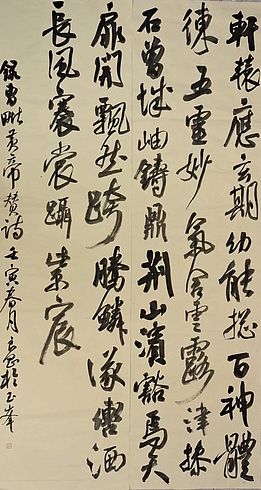 軒轅應玄期幼能揔百神體
練五靈妙氣含雲露津摻
石曾城岫鑄鼎荊山濱豁焉天
扉開飄然跨騰鱗儀轡洒
長風褰裳躡紫宸
錄曹毗黃帝贊詩壬寅春月於玉峯